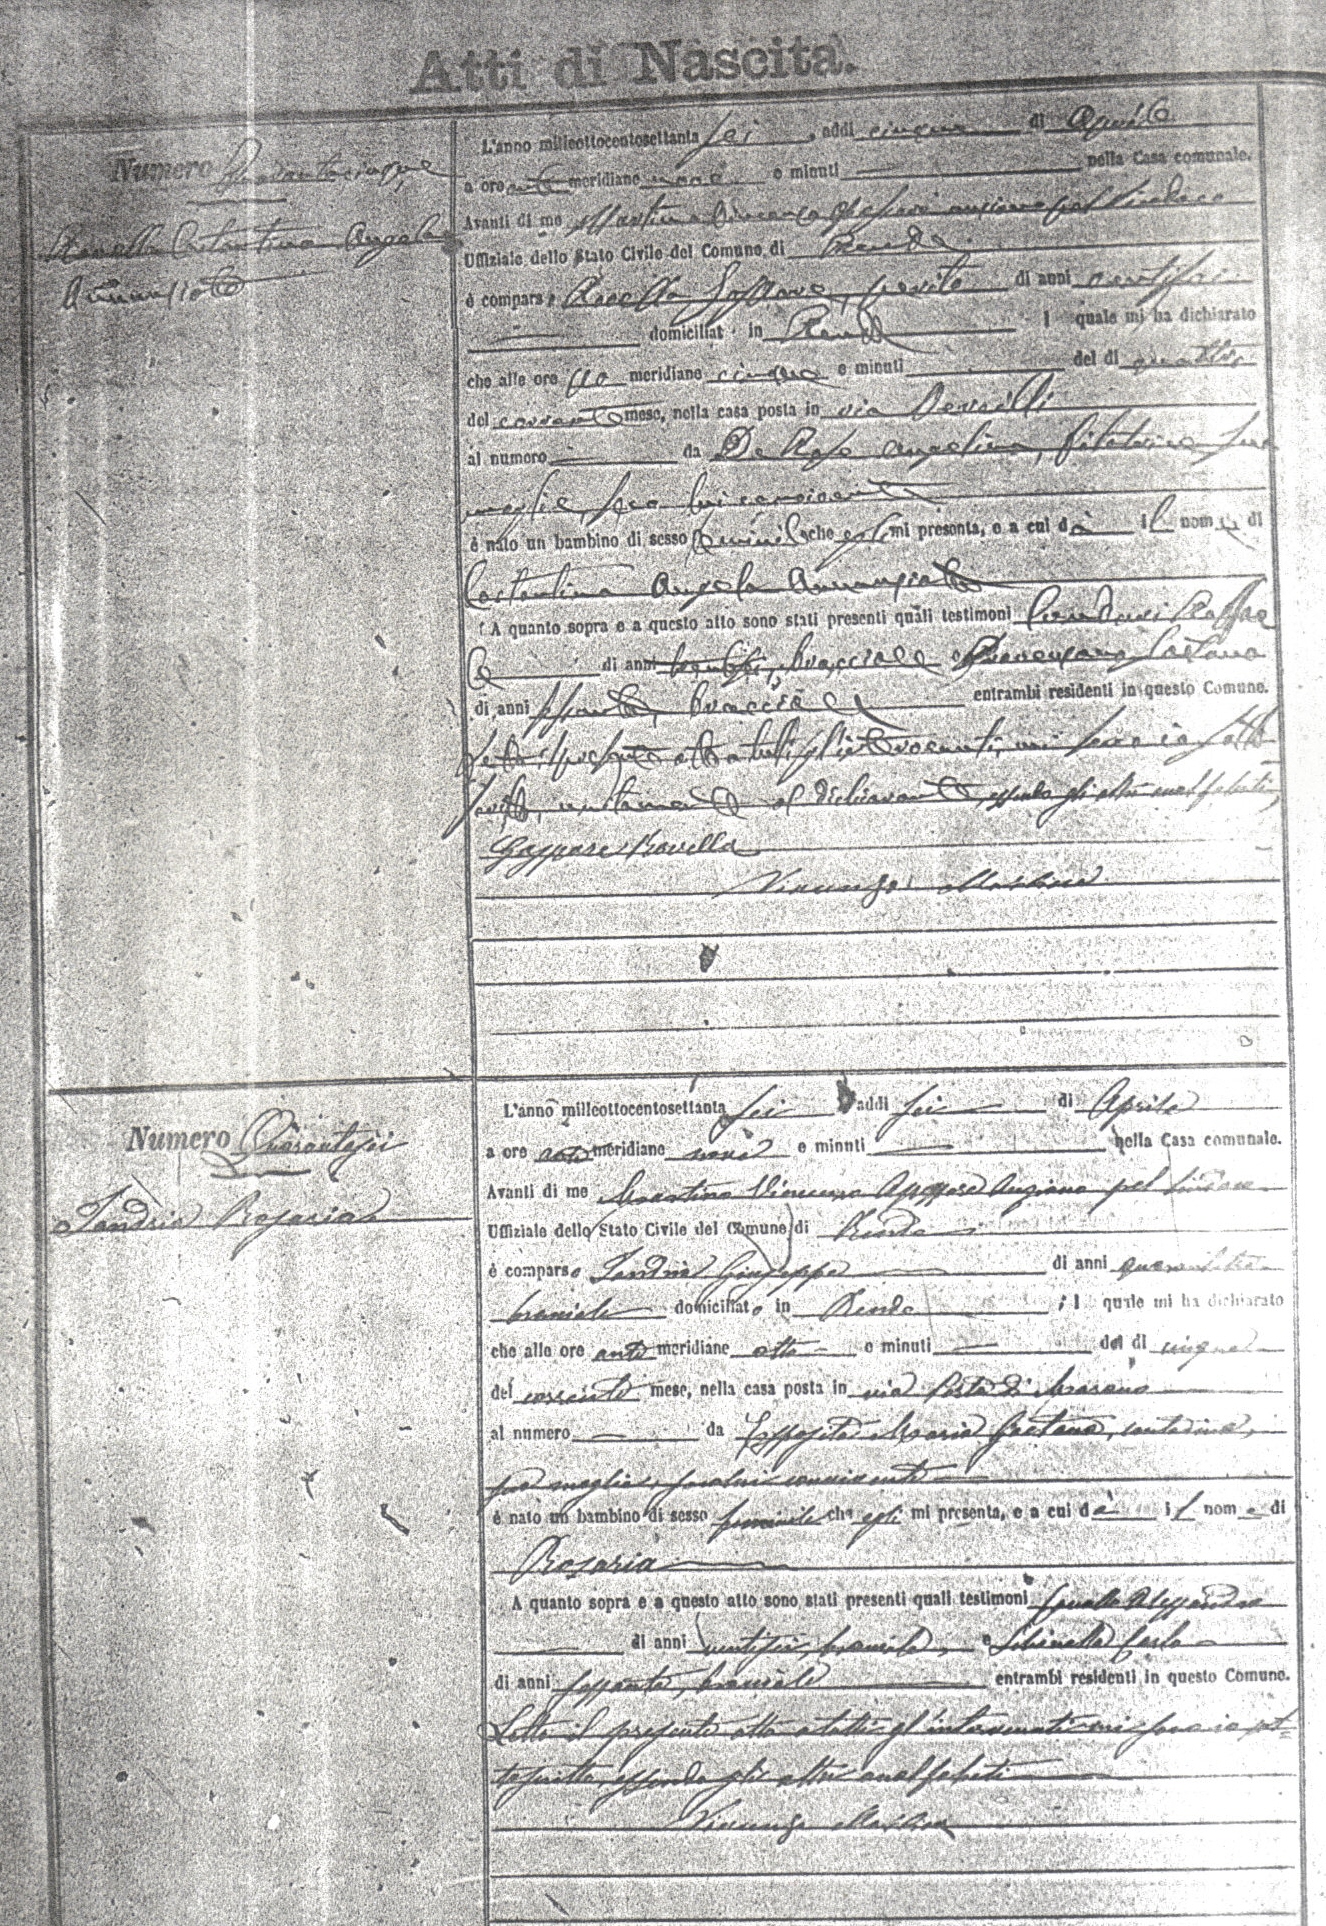 Atti di Nascita.
Numero Quarantacinque
Rovella Costantina Angela
Annunziata
L'anno milleottocentosettanta sei, addi cinque di Aprile
a ore ante meridiane nove e minuti nella Casa comunale.
Avanti di me Martino Vincenzo Assessore anziano pel Sindaco
Uffiziale dello Stato Civile del Comune di Rende
è comparso Rovella Gaspare, di anni ventisei
domiciliato in Rende il quale mi ha dichiarato
che alle ore meridiane cinque e minuti del dì quattro
del corrente mese, nella casa posta in via
al numero da De Rose Angelina, filatrice sua
moglie, seco lui convivente
è nato un bambino di sesso feminile che egli mi presenta, e a cui dà il nome di
Costantina Angela Annunziata
A quanto sopra e a questo atto sono stati presenti quali testimoni Raffae
le di anni bracciale e Provenzano Gaetano
di anni sessanta, bracciale entrambi residenti in questo Comune.
Letto il presente atto a tutti gl'intervenuti, mi sono io sotto
scritto unitamente al dichiarante, essendo gli altri analfabeti,
Gaspare Rovella
Vincenzo Martino
Numero Quarantasei
Sandria Rosaria
L'anno milleottocentosettanta sei addi sei di Aprile
a ore ante meridiane nove e minuti nella Casa comunale.
Avanti di me Martino Vincenzo Assessore Anziano pel Sindaco
Uffiziale dello Stato Civile del Comune di Rende
è comparso Sandria Giuseppe di anni quarantatre
braciale domiciliato in Rende il quale mi ha dichiarato
che alle ore ante meridiane otto e minuti del dì cinque
del corrente mese, nella casa posta in via Porta di Marano
al numero da Esposito Maria Gaetana, contadina,
sua moglie, seco lui convivente
è nato un bambino di sesso feminile che egli mi presenta, e a cui dà il nome di
Rosaria
A quanto sopra e a questo atto sono stati presenti quali testimoni Alessandro
di anni ventisei, braciale, e Carlo
di anni sessanta, braciale entrambi residenti in questo Comune.
Letto il presente atto a tutti gl'intervenuti mi sono io sot-
toscritto, essendo gli altri analfabeti
Vincenzo Martino